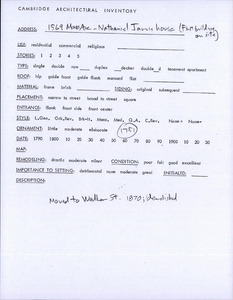 CAMBRIDGE ARCHITECTURAL INVENTORY
ADDRESS: 1564 Mass Ave - Nathaniel Jarvis house (First building on site)
USE: residential commercial religious
STORIES: 1 2 3 4 5
TYPE: single double row duplex decker double_d tenement apartment
ROOF: hip gable front gable flank mansard flat
MATERIAL: frame brick SIDING: original subsequent
PLACEMENT: narrow to street broad to street square
ENTRANCE: flank front side front center
STYLE: Mans, Med, Q.A., None+ None+
ORNAMENT: little moderate elaborate (1751)
DATE: 1790 1800 10 20 30 40 50 60 70 80 90 1900 10 20 30
MAP:
REMODELING: drastic moderate minor CONDITION: poor fair good excellent
IMPORTANCE TO SETTING: detrimental none moderate great INITIALED:
DESCRIPTION:
Moved to Walker St. 1870; demolished